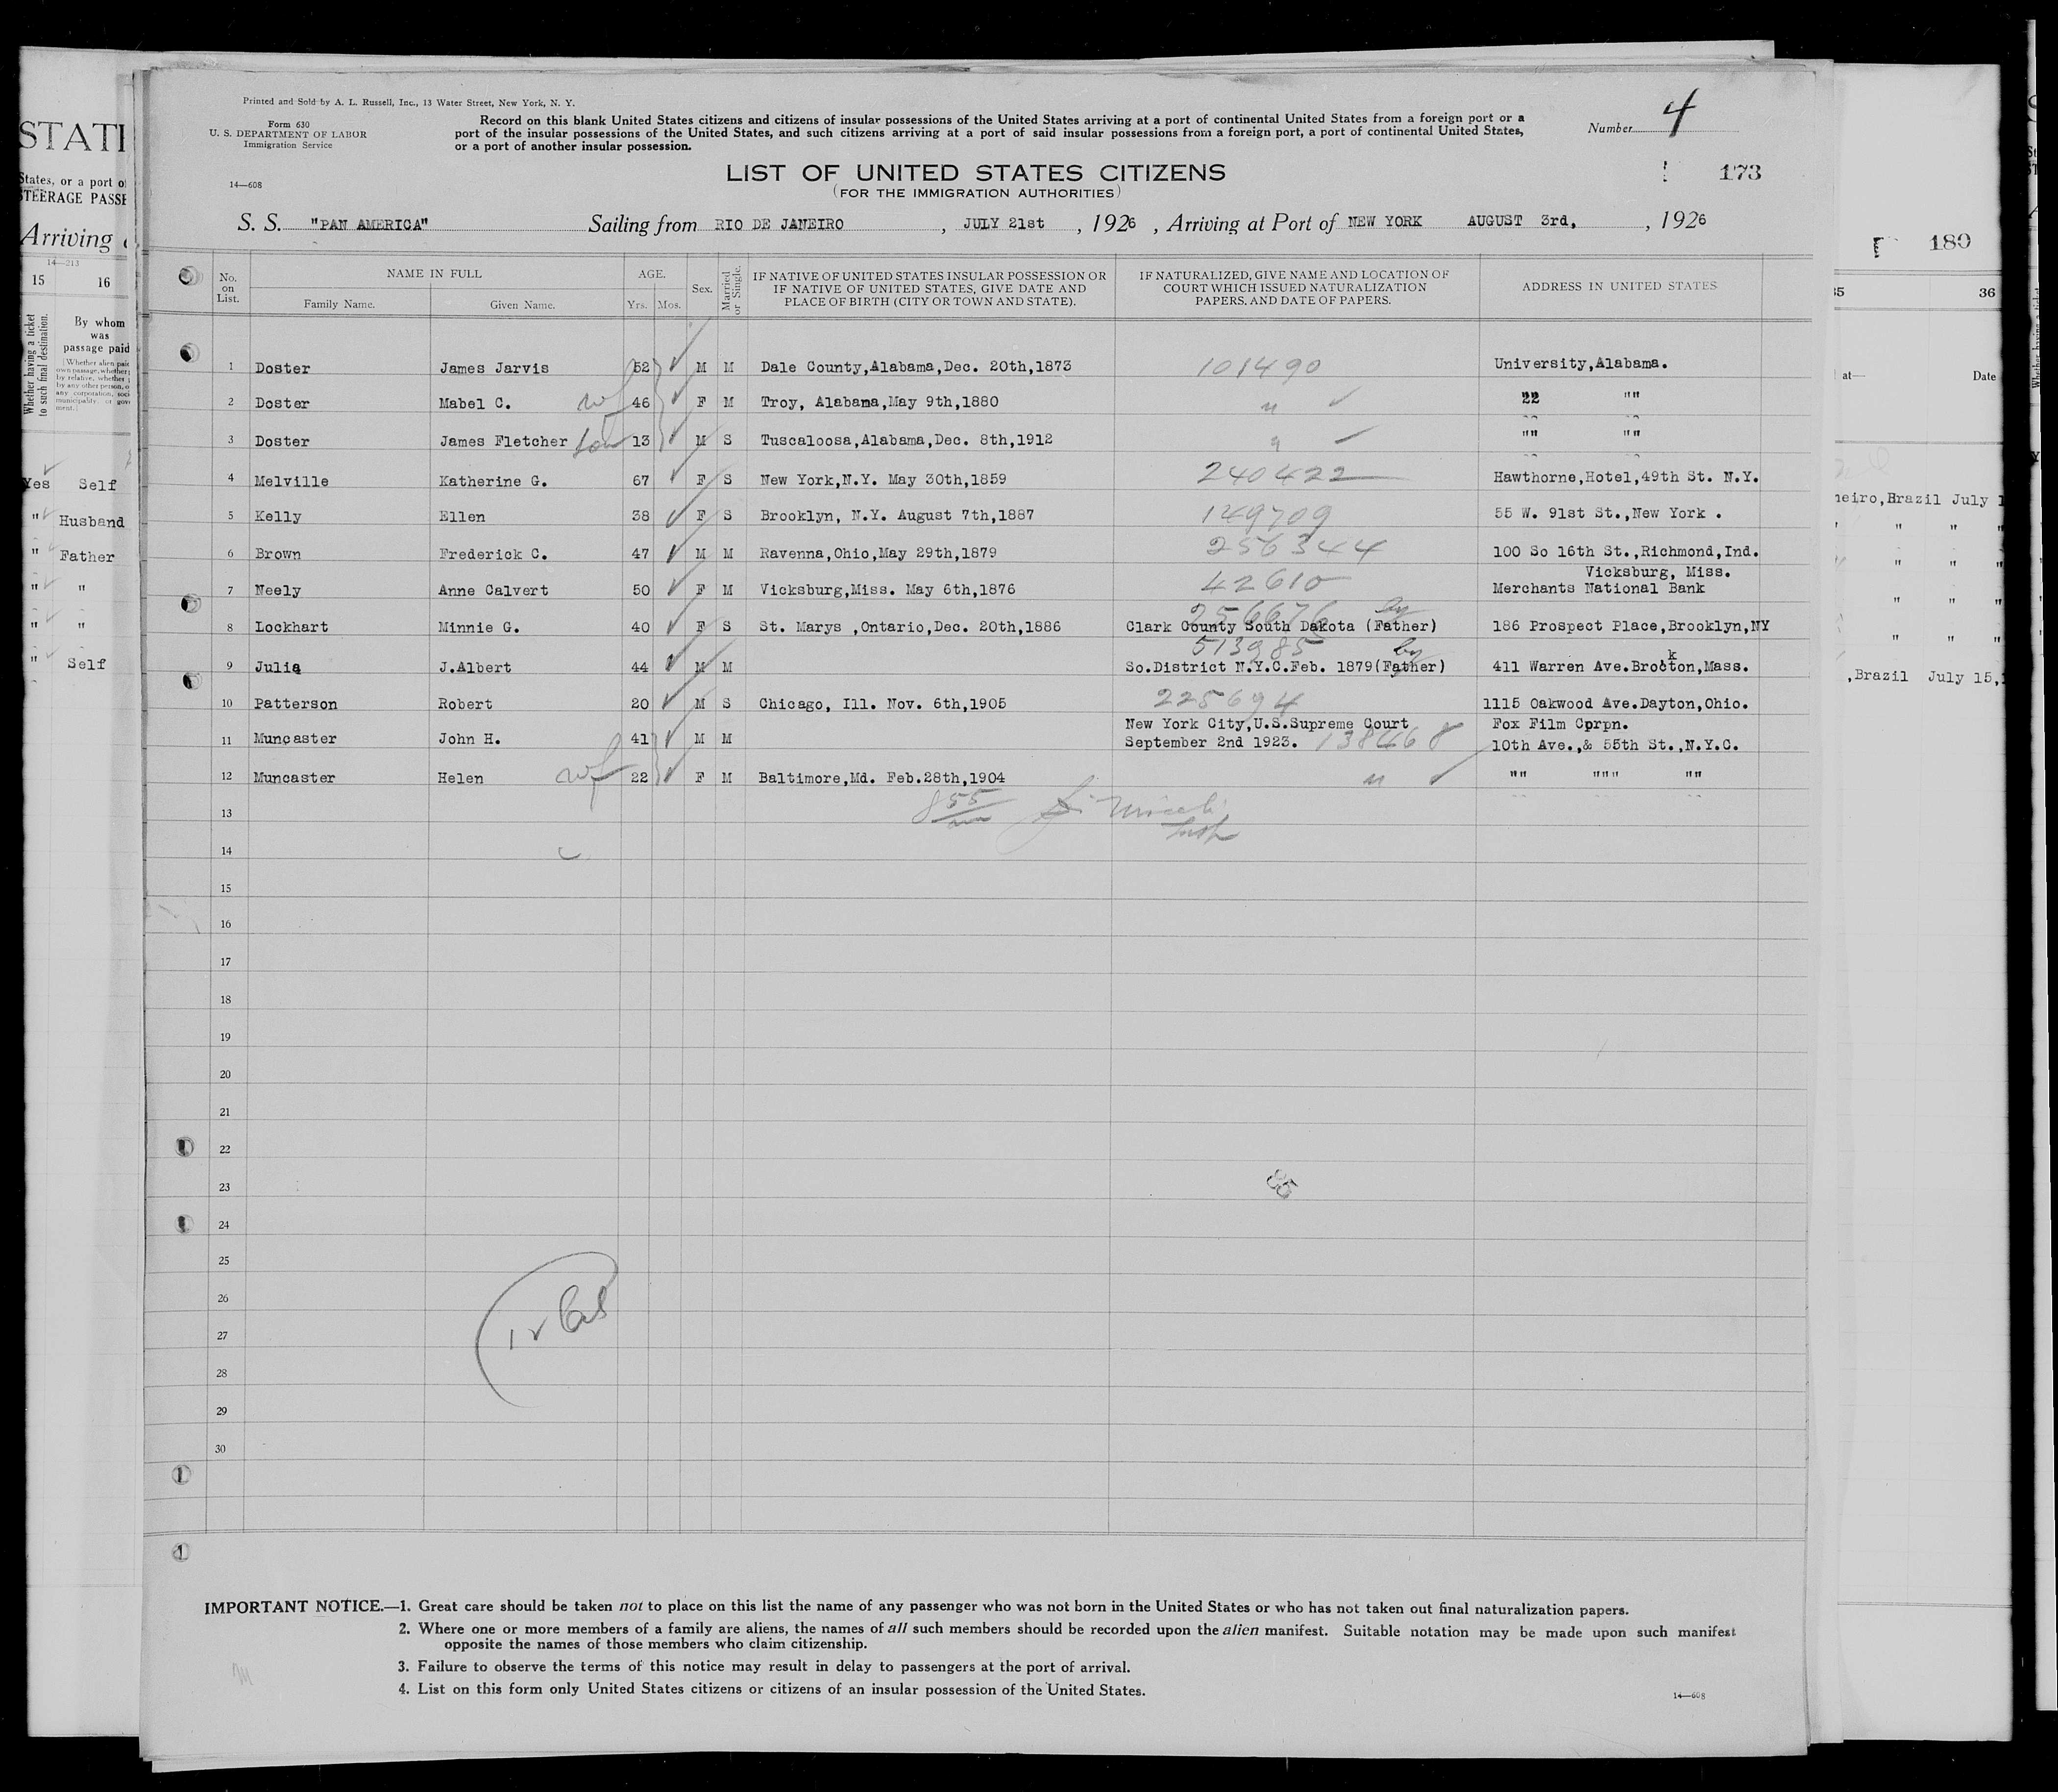 Printed and Sold by A. L. Russell, Inc., 13 Water Street, New York, N. Y.
Form 630
U. S. DEPARTMENT OF LABOR
Immigration Service
14—608
Record on this blank United States citizens and citizens of insular possessions of the United States arriving at a port of continental United States from a foreign port or a
port of the insular possessions of the United States, and such citizens arriving at a port of said insular possessions from a foreign port, a port of continental United States,
or a port of another insular possession.
Number 4
173
LIST OF UNITED STATES CITIZENS
(FOR THE IMMIGRATION AUTHORITIES)
S. S. "PAN AMERICA" Sailing from RIO DE JANEIRO , JULY 21st , 1926 , Arriving at Port of NEW YORK AUGUST 3rd, , 1926
No. on List. NAME IN FULL Family Name. Given Name. AGE. Yrs. Mos. Sex. Married or Single. IF NATIVE OF UNITED STATES INSULAR POSSESSION OR IF NATIVE OF UNITED STATES, GIVE DATE AND PLACE OF BIRTH (CITY OR TOWN AND STATE). IF NATURALIZED, GIVE NAME AND LOCATION OF COURT WHICH ISSUED NATURALIZATION PAPERS, AND DATE OF PAPERS. ADDRESS IN UNITED STATES
1 Doster James Jarvis 52 M M Dale County,Alabama,Dec. 20th,1873 101490 University,Alabama.
2 Doster Mabel C. wf 46 F M Troy, Alabama,May 9th,1880 " 22 ""
3 Doster James Fletcher son 13 M S Tuscaloosa,Alabama,Dec. 8th,1912 " "" ""
4 Melville Katherine G. 67 F S New York,N.Y. May 30th,1859 240422 Hawthorne,Hotel,49th St. N.Y.
5 Kelly Ellen 38 F S Brooklyn, N.Y. August 7th,1887 149709 55 W. 91st St.,New York .
6 Brown Frederick C. 47 M M Ravenna,Ohio,May 29th,1879 256344 100 So 16th St.,Richmond,Ind.
Vicksburg, Miss.
7 Neely Anne Calvert 50 F M Vicksburg,Miss. May 6th,1876 42610 Merchants National Bank
256676 by
8 Lockhart Minnie G. 40 F S St. Marys ,Ontario,Dec. 20th,1886 Clark County South Dakota (Father) 186 Prospect Place,Brooklyn,NY
513985 by
9 Julia J.Albert 44 M M So.District N.Y.C.Feb. 1879(Father) 411 Warren Ave.Brockton,Mass.
10 Patterson Robert 20 M S Chicago, Ill. Nov. 6th,1905 225694 1115 Oakwood Ave.Dayton,Ohio.
New York City,U.S.Supreme Court Fox Film Cprpn.
11 Muncaster John H. 41 M M September 2nd 1923. 138468 10th Ave.,& 55th St.,N.Y.C.
12 Muncaster Helen wf 22 F M Baltimore,Md. Feb.28th,1904 " "" """ ""
13 855
14
15
16
17
18
19
20
21
22
23
35
24
25
26
27
28
29
30
IMPORTANT NOTICE.—1. Great care should be taken not to place on this list the name of any passenger who was not born in the United States or who has not taken out final naturalization papers.
2. Where one or more members of a family are aliens, the names of all such members should be recorded upon the alien manifest. Suitable notation may be made upon such manifest
opposite the names of those members who claim citizenship.
3. Failure to observe the terms of this notice may result in delay to passengers at the port of arrival.
4. List on this form only United States citizens or citizens of an insular possession of the United States.
14—608
STATI
States, or a port of
STEERAGE PASSE
Arriving
14—213
15 16
Whether having a ticket to such final destination.
By whom
was
passage paid
Yes Self
" Husband
" Father
" "
" "
" Self
180
35 36
at— Date
neiro,Brazil July 1
" " "
" " "
" " "
" "
,Brazil July 15,1